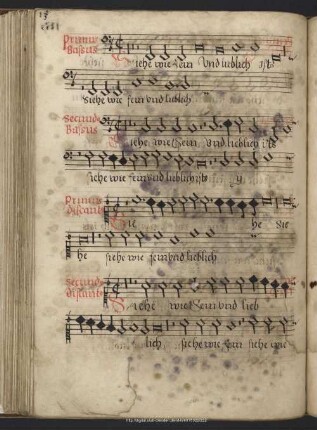 Primus
Bassus
Siehe wie fein Vnd lieblich ists
Siehe wie fein vnd lieblich
Secund9
Bassus
Siehe wie fein Vnd lieblich ists
siehe wie fein vnd lieblich ists
Primus
discant9
Sie he Sie
he siehe wie fein vnd lieblich
Secund9
discant9
Siehe wie fein vnd lieb
lich siehe wie fein siehe wie